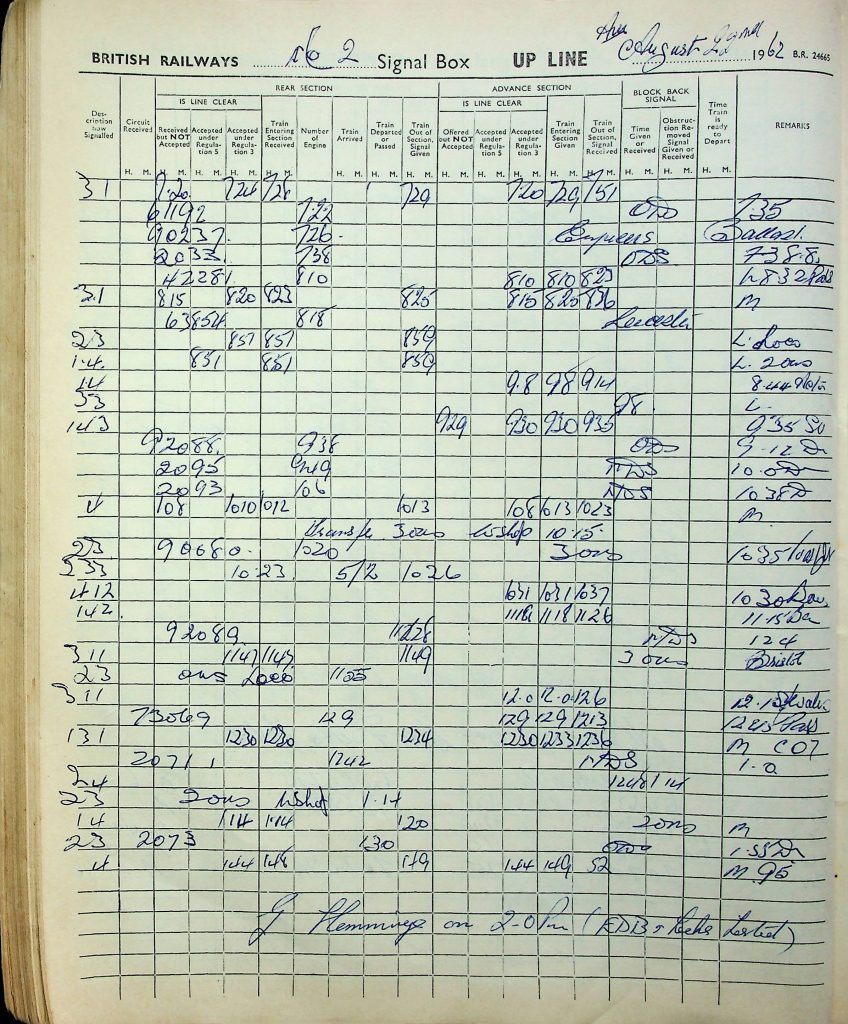 BRITISH RAILWAYS No 2 Signal Box UP LINE August 22nd 1962 B.R. 24665
REAR SECTION ADVANCE SECTION BLOCK BACK SIGNAL
IS LINE CLEAR IS LINE CLEAR
Description how Signalled Circuit Received Received but NOT Accepted Accepted under Regulation 5 Accepted under Regulation 3 Train Entering Section Received Number of Engine Train Arrived Train Departed or Passed Train Out of Section, Signal Given Offered but NOT Accepted Accepted under Regulation 5 Accepted under Regulation 3 Train Entering Section Given Train Out of Section, Signal Received Time Given or Received Obstruction Removed Signal Given or Received Time Train is ready to Depart REMARKS
H. M. H. M. H. M. H. M. H. M. H. M. H. M. H. M. H. M. H. M. H. M. H. M. H. M. H. M. H. M. H. M.
3 1 7 20 724 728 729 720 729 751
61192 722 735
90237 726 Empties Ballast
2033 738 738.8
42281 810 810 810 823
3.1 815 820 823 825 815 825 836 M
63854 818 Leicester
23 857 857 859 L. Loco
1.4 851 851 859 L. 2 ons
14 9.8 98 914
53 98. L.
143 929 930 930 935 935
92088 938 9.12
2095 949 NDS 10.0
2093 106 NDS 1038
4 108 1010 1012 1013 108 1013 1023 M
Transfer 3 ons 10.15
23 90680 1020 3 ons 1035
233 10.23 5/2 1026
412 1031 1031 1037 1030
142 1118 1118 1126 11.15
92089 1128 NDS 124
311 1147 1147 1149 3 ons Bristol
23 ons Loco 1155
311 12.0 12.0 126
73069 129 129 129 1213 1245
131 1230 1230 1234 1230 1233 1236 M C07
2071 1242 NDS 1.0
24 1248 114
23 2 ons 1.14
14 114 114 120 2 ons M
23 2073 130 1.55
4 144 148 149 144 149 52 M 95
G Flemmings on 2-0 Pm (EDB & Tested)